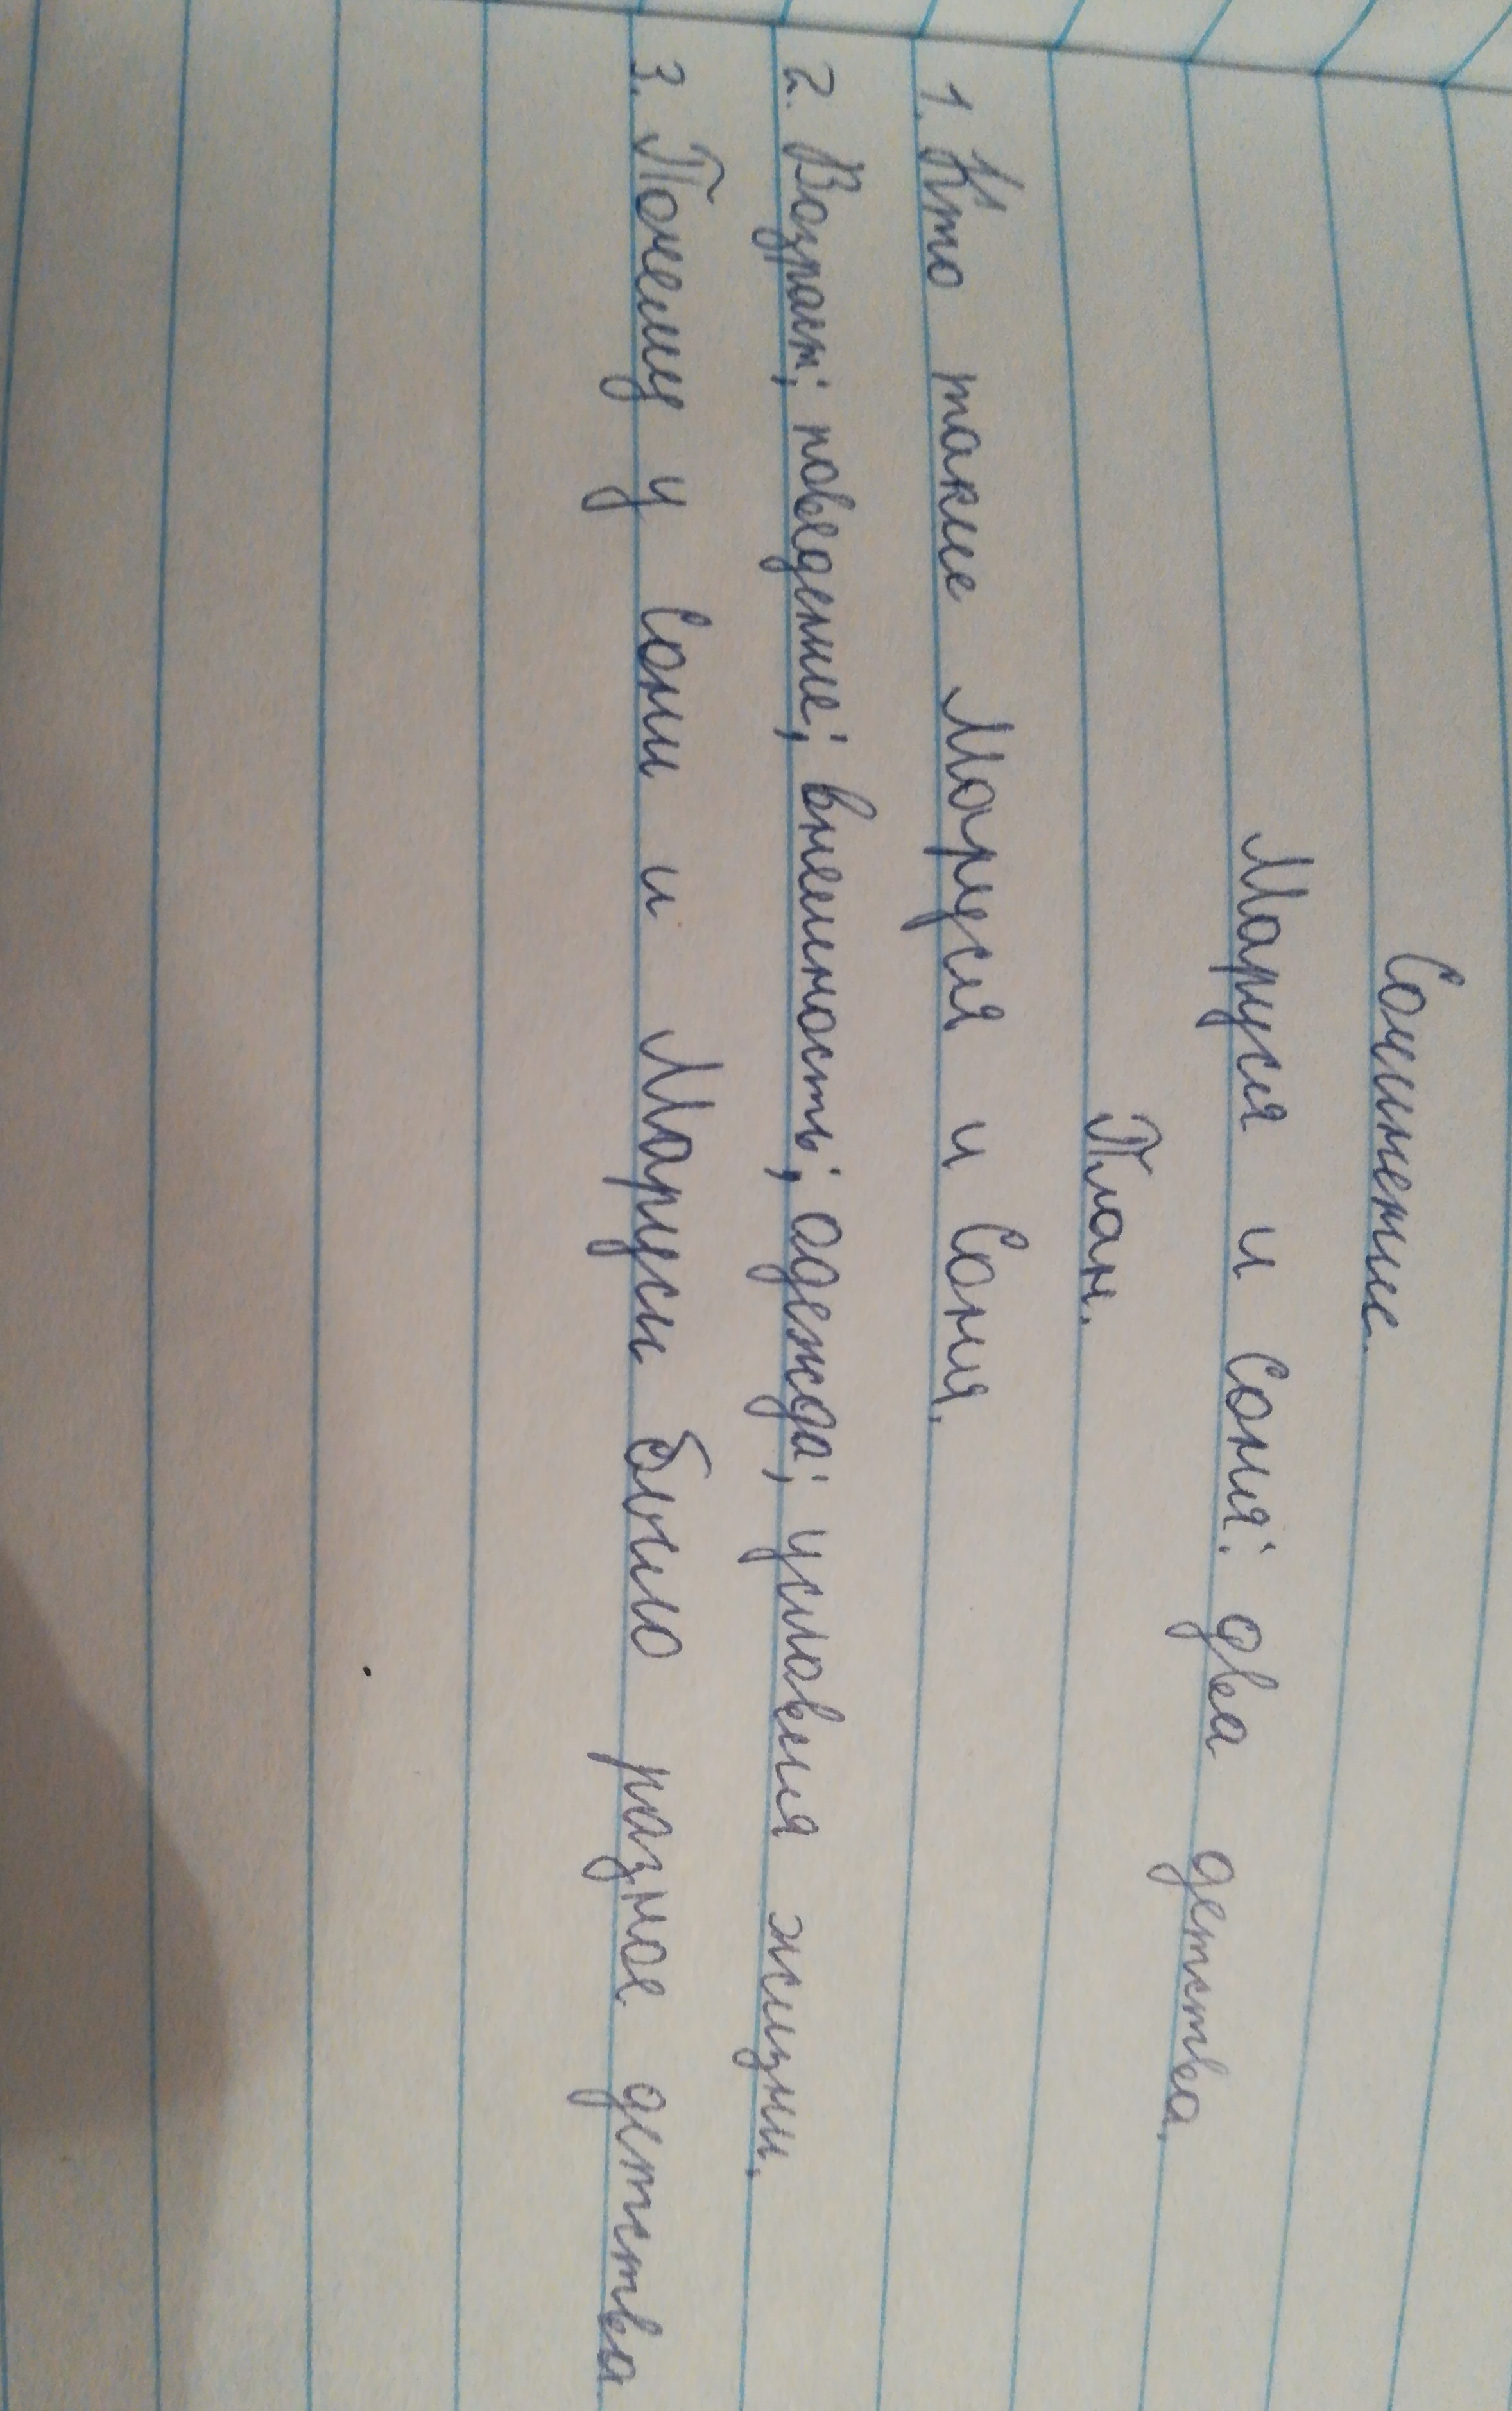 Сочинение.
Маруся и Соня: два детства.
План.
1. Кто такие Маруся и Соня.
2. Возраст; поведение; внешность; одежда; условия жизни.
3. Почему у Сони и Маруси было разное детства